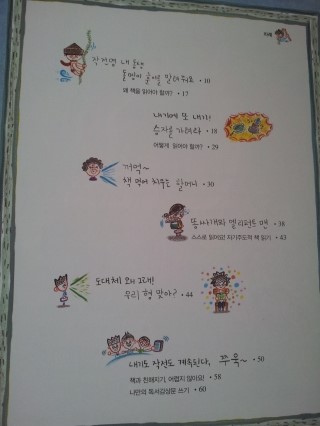 차례
작전명 내 동생
돌멩이 굴이를 말려줘요 • 10
왜 책을 읽어야 할까? • 17
내기에 또 내기!
승자를 가려라 • 18
어떻게 읽어야 할까? • 29
꺼억~
책 먹어 치우는 할머니 • 30
똥싸개와 엘리펀트 맨 • 38
스스로 읽어요! 자기주도적 책 읽기 • 43
도대체 왜 그래!
우리 형 맞아? • 44
내기도 작전도 계속된다, 쭈욱~ • 50
책과 친해지기, 어렵지 않아요! • 58
나만의 독서감상문 쓰기 • 60